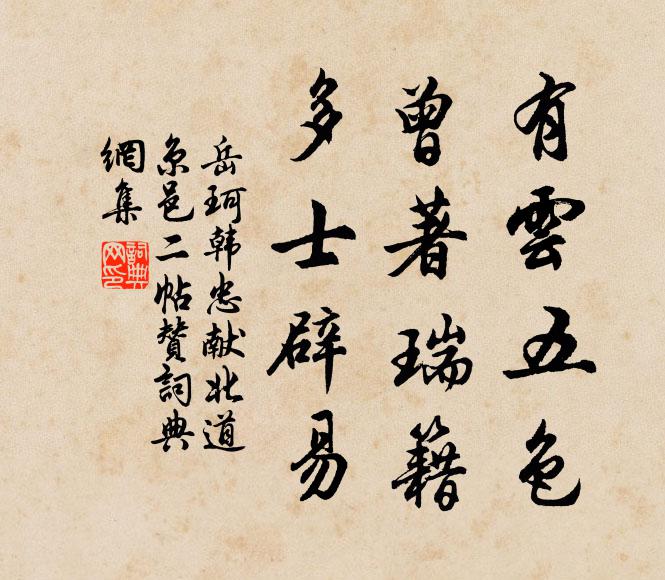 有雲五色
曾著瑞籍
多士辟易
岳珂韩忠献北道
京邑二帖賛詞典
網集
詞典網印